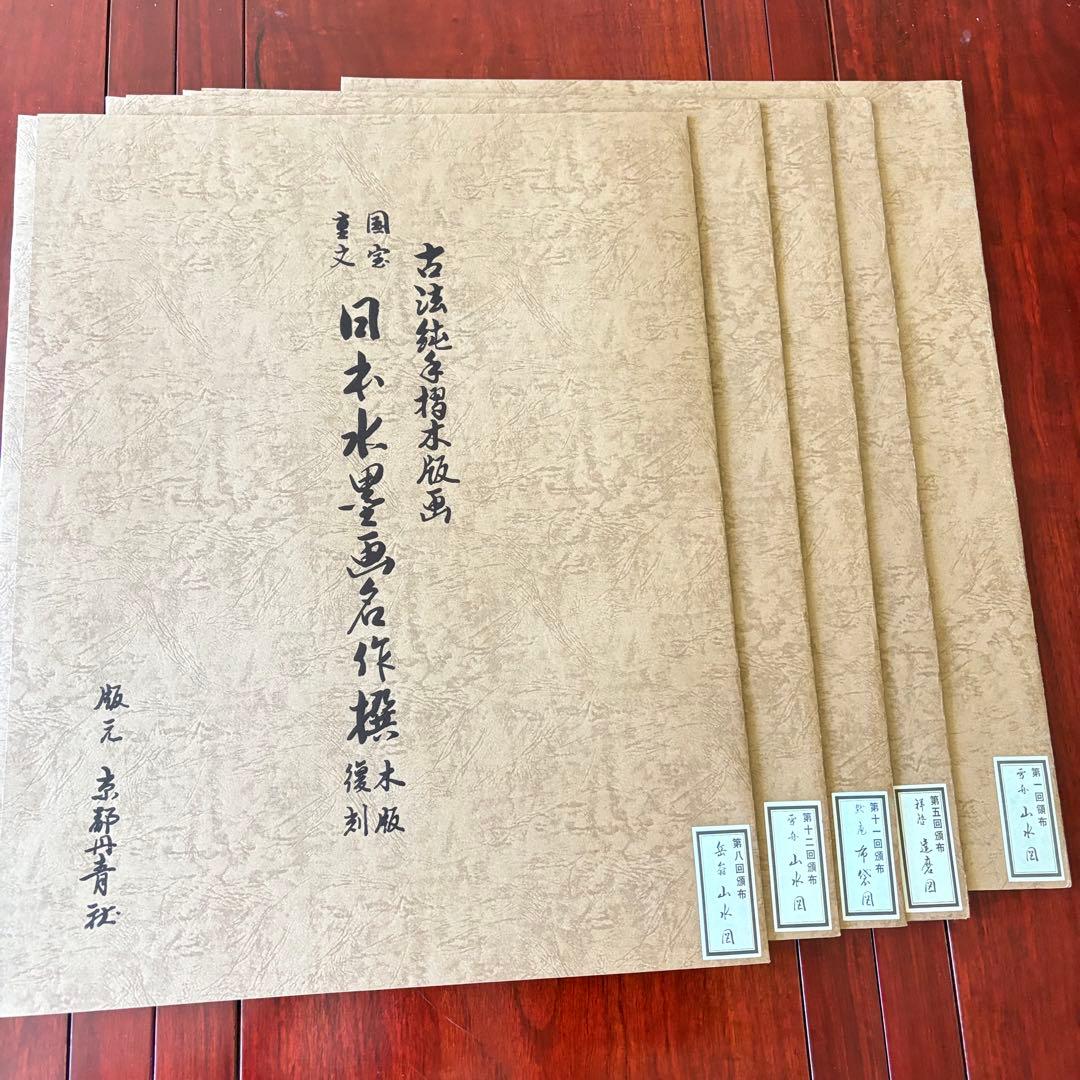 古法純手摺木版画
国宝
重文
日本水墨画名作撰
木版
復刻
版元 京都丹青社
第一回頒布
雪舟 山水図
第五回頒布
祥啓 達磨図
第十一回頒布
布袋図
第十二回頒布
雪舟 山水図
第八回頒布
岳翁 山水図